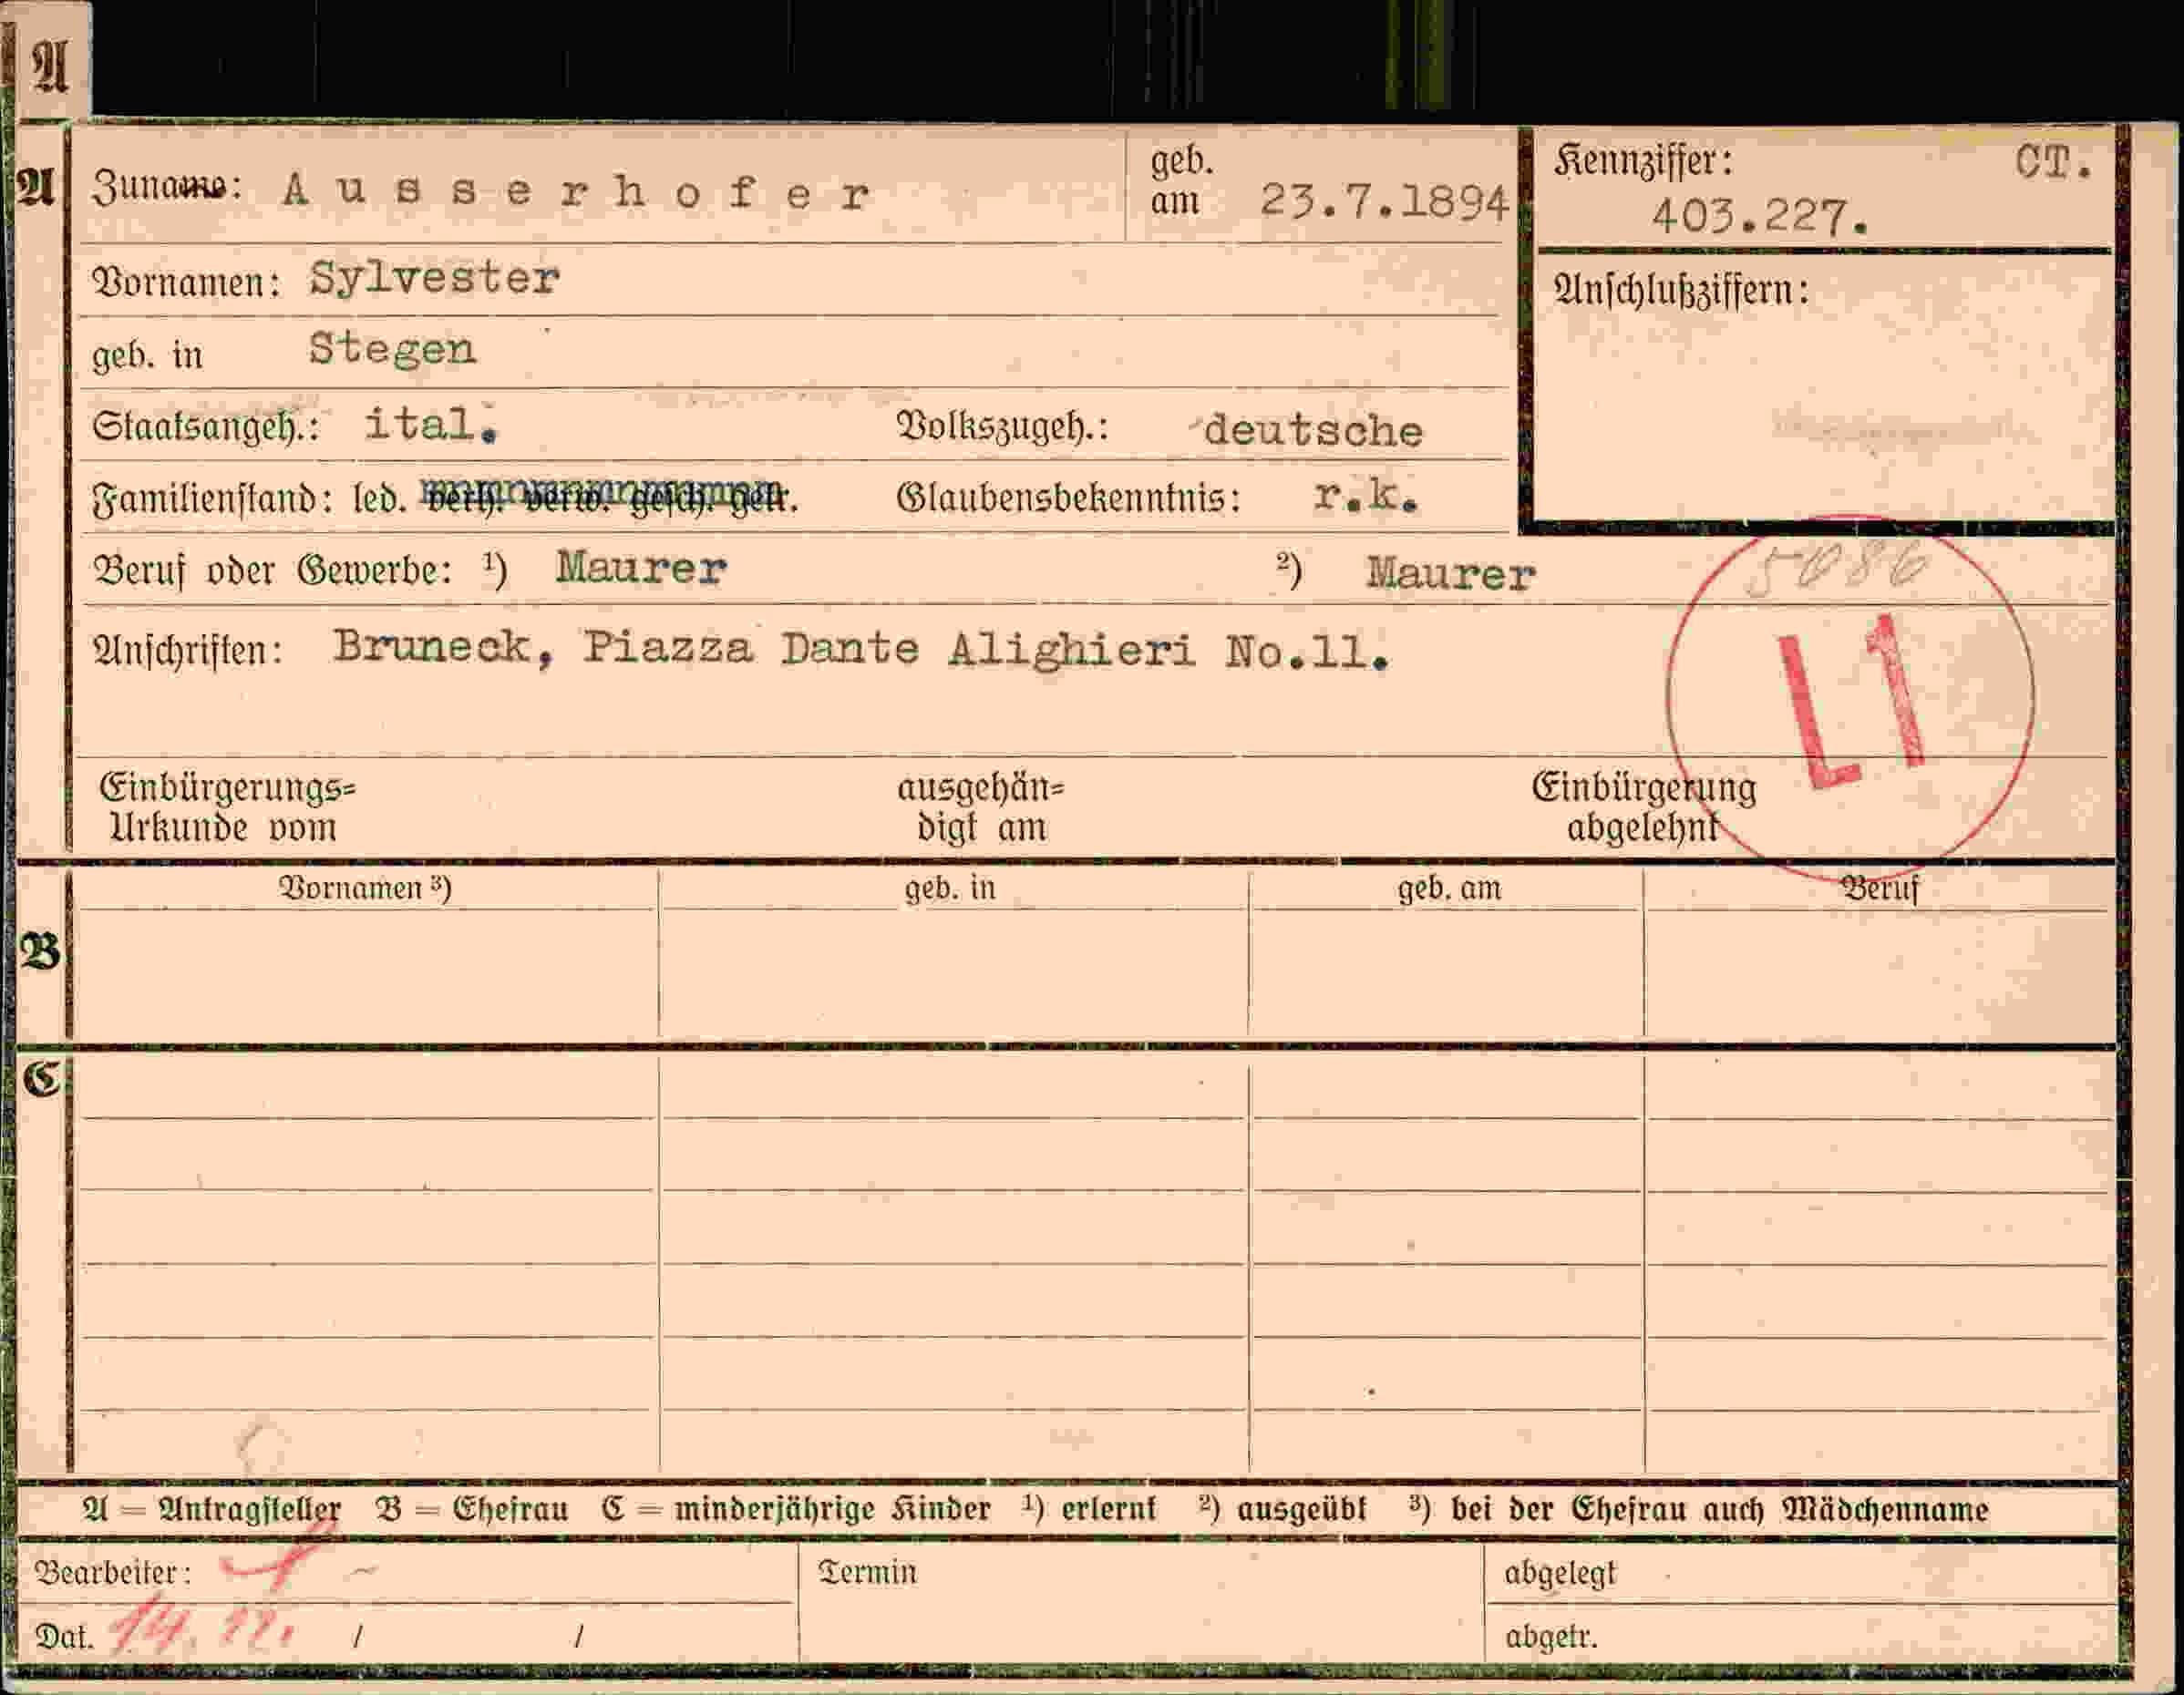 A
A Zuname: A u s s e r h o f e r geb. am 23.7.1894 Kennziffer: CT. 403.227.
Vornamen: Sylvester Anschlußziffern:
geb. in Stegen
Staatsangeh.: ital. Volkszugeh.: deutsche
Familienstand: led. verh. verw. gesch. getr. Glaubensbekenntnis: r.k.
Beruf oder Gewerbe: ¹) Maurer ²) Maurer 5086
Anschriften: Bruneck, Piazza Dante Alighieri No.11. L1
Einbürgerungs= ausgehän= Einbürgerung
Urkunde vom digt am abgelehnt
B Vornamen ³) geb. in geb. am Beruf
C
A = Antragsteller B = Ehefrau C = minderjährige Kinder ¹) erlernt ²) ausgeübt ³) bei der Ehefrau auch Mädchenname
Bearbeiter: Termin abgelegt
Dat. 14. / / abgetr.